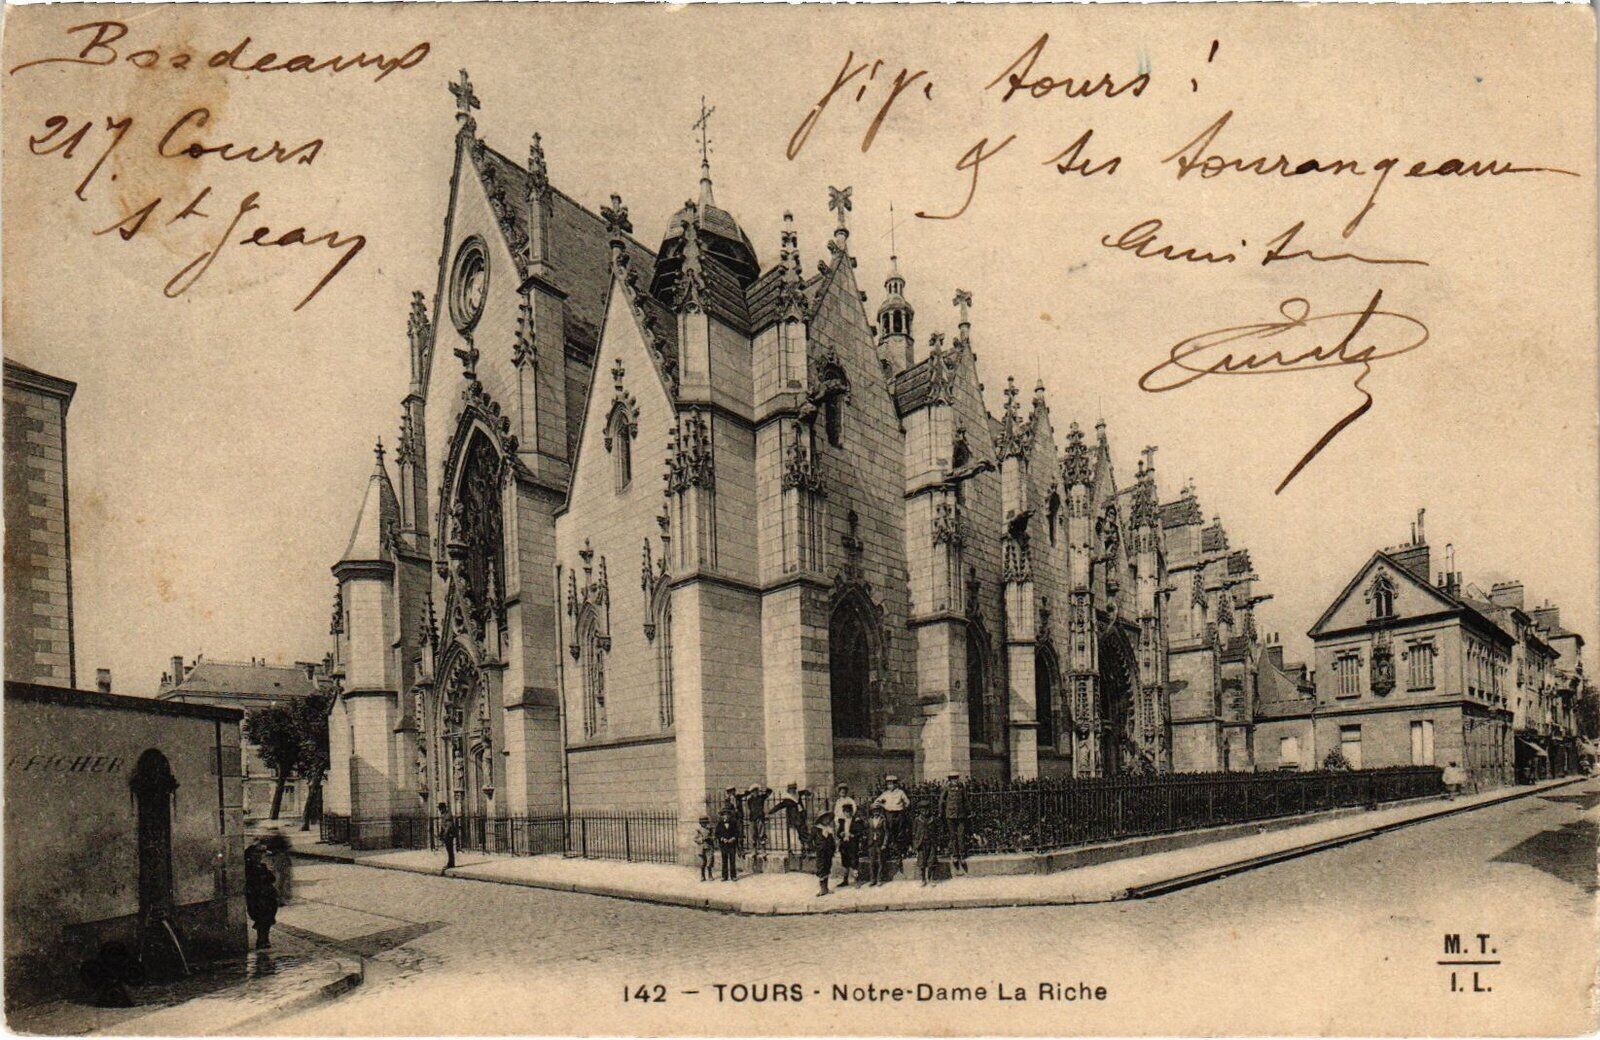 Bordeaux
217 Cours
St Jean
Vive tours !
& ses tourangeaux
142 - TOURS - Notre-Dame La Riche
M. T.
I. L.